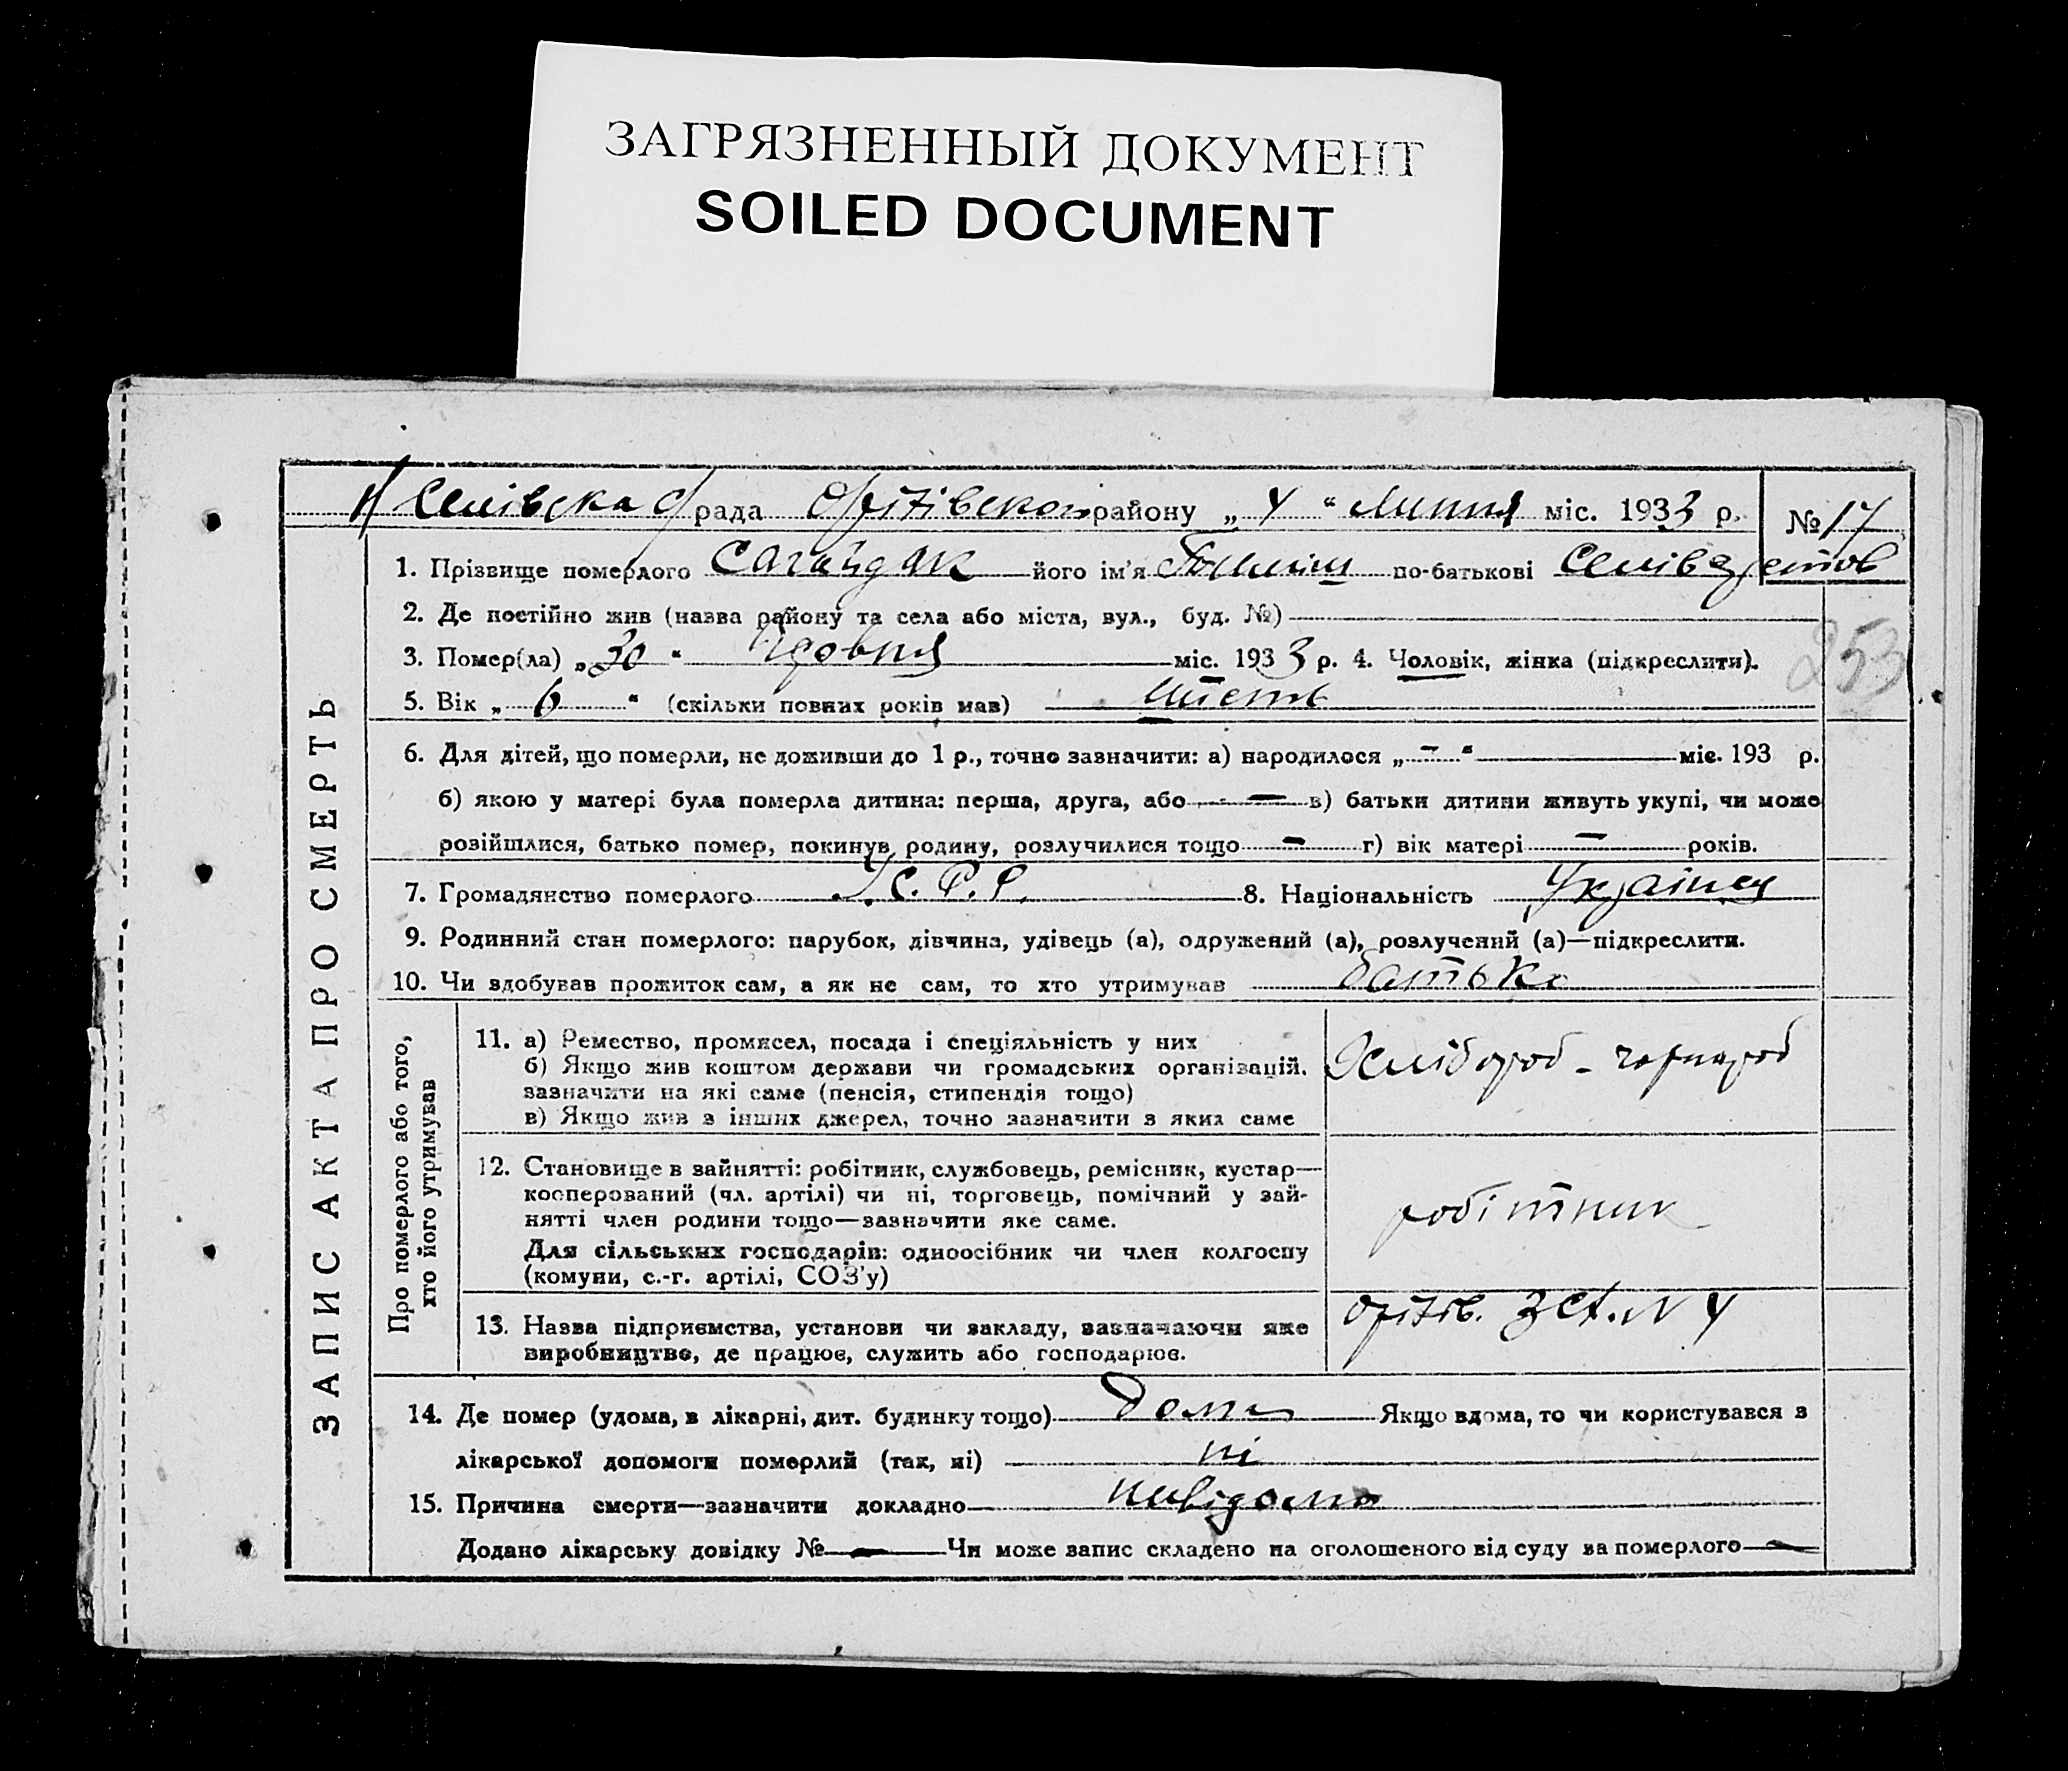 ЗАГРЯЗНЕННЫЙ ДОКУМЕНТ
SOILED DOCUMENT
рада району „ 4 “ Липня міс. 1933 р. № 17
1. Прізвище померлого Сагайдак його ім'я по-батькові
2. Де постійно жив (назва району та села або міста, вул., буд. №)
3. Помер(ла) „ 30 “ міс. 1933 р. 4. Чоловік, жінка (підкреслити).
253
5. Вік „ 6 “ (скільки повних років мав) шість
6. Для дітей, що померли, не доживши до 1 р., точно зазначити: а) народилося „ – “ міс. 193 р.
б) якою у матері була померла дитина: перша, друга, або — в) батьки дитини живуть укупі, чи може
розійшлися, батько помер, покинув родину, розлучилися тощо – г) вік матері – років.
7. Громадянство померлого У.С.Р.Р. 8. Національність Українец
9. Родинний стан померлого: парубок, дівчина, удівець (а), одружений (а), розлучений (а)—підкреслити.
10. Чи здобував прожиток сам, а як не сам, то хто утримував батько
ЗАПИС АКТА ПРО СМЕРТЬ
Про померлого або того,
хто його утримував
11. а) Ремество, промисел, посада і спеціяльність у них
б) Якщо жив коштом держави чи громадських організацій.
зазначити на які саме (пенсія, стипендія тощо)
в) Якщо жив з інших джерел, точно зазначити з яких саме
Хлібороб - чорнороб
12. Становище в зайнятті: робітник, службовець, ремісник, кустар—
кооперований (чл. артілі) чи ні, торговець, помічний у зай-
нятті член родини тощо—зазначити яке саме.
Для сільських господарів: одноосібник чи член колгоспу
(комуни, с.-г. артілі, СОЗ'у)
робітник
13. Назва підприємства, установи чи закладу, зазначаючи яке
виробництво, де працює, служить або господарює.
14. Де помер (удома, в лікарні, дит. будинку тощо) дома Якщо вдома, то чи користувався з
лікарської допомоги померлий (так, ні) ні
15. Причина смерти—зазначити докладно невідома
Додано лікарську довідку № — Чи може запис складено на оголошеного від суду за померлого —